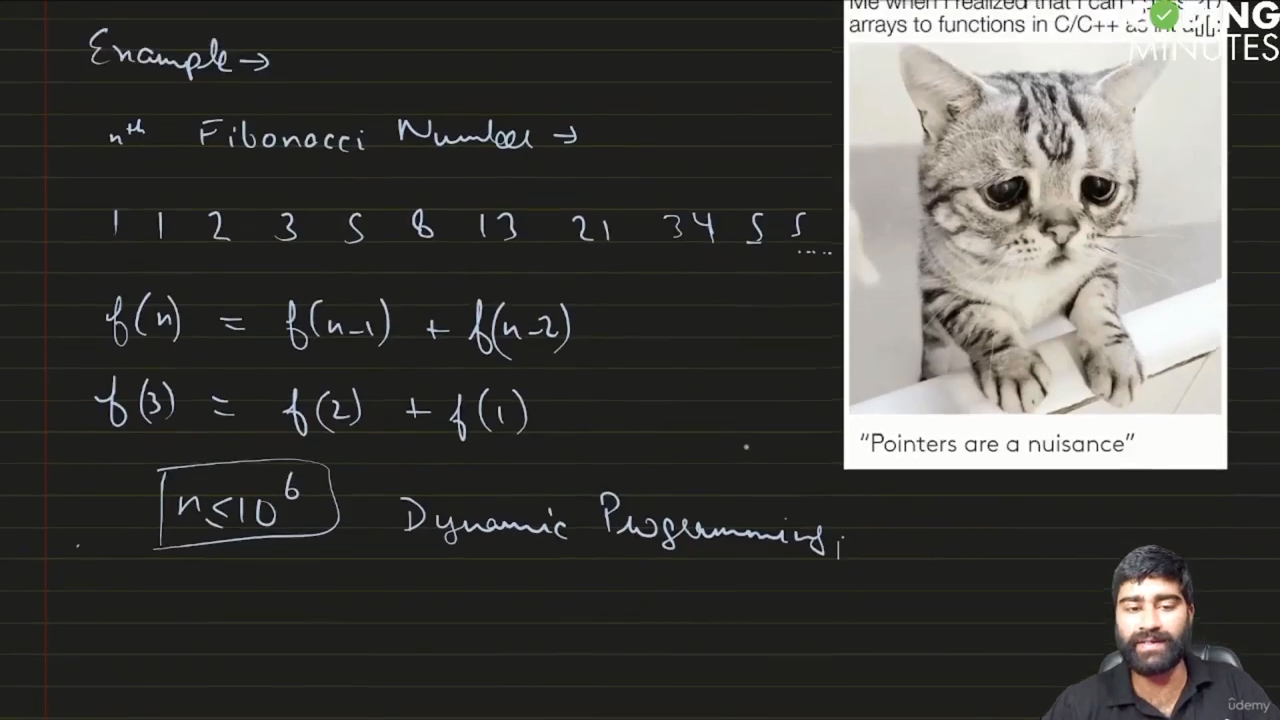 Example →
nth Fibonacci Number →
1 1 2 3 5 8 13 21 34 55 .....
f(n) = f(n-1) + f(n-2)
f(3) = f(2) + f(1)
n≤10^6 Dynamic Programming,
Me when I realized that I can
arrays to functions in C/C++ as int
"Pointers are a nuisance"
MINUTES
ûdemy